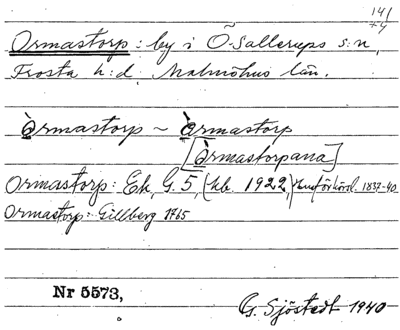 14/
74
Ormastorp: by i Ö. Sallerups s:n,
Frosta h:d, Malmöhus län.
Òrmastorp ~ Òrmastorp
[Òrmastorpana]
Ormastorp: Ek, G. 5, (kb. 1922,) 1837-40
Ormastorp: Gillberg 1765
Nr 5573,
G. Sjöstedt 1940